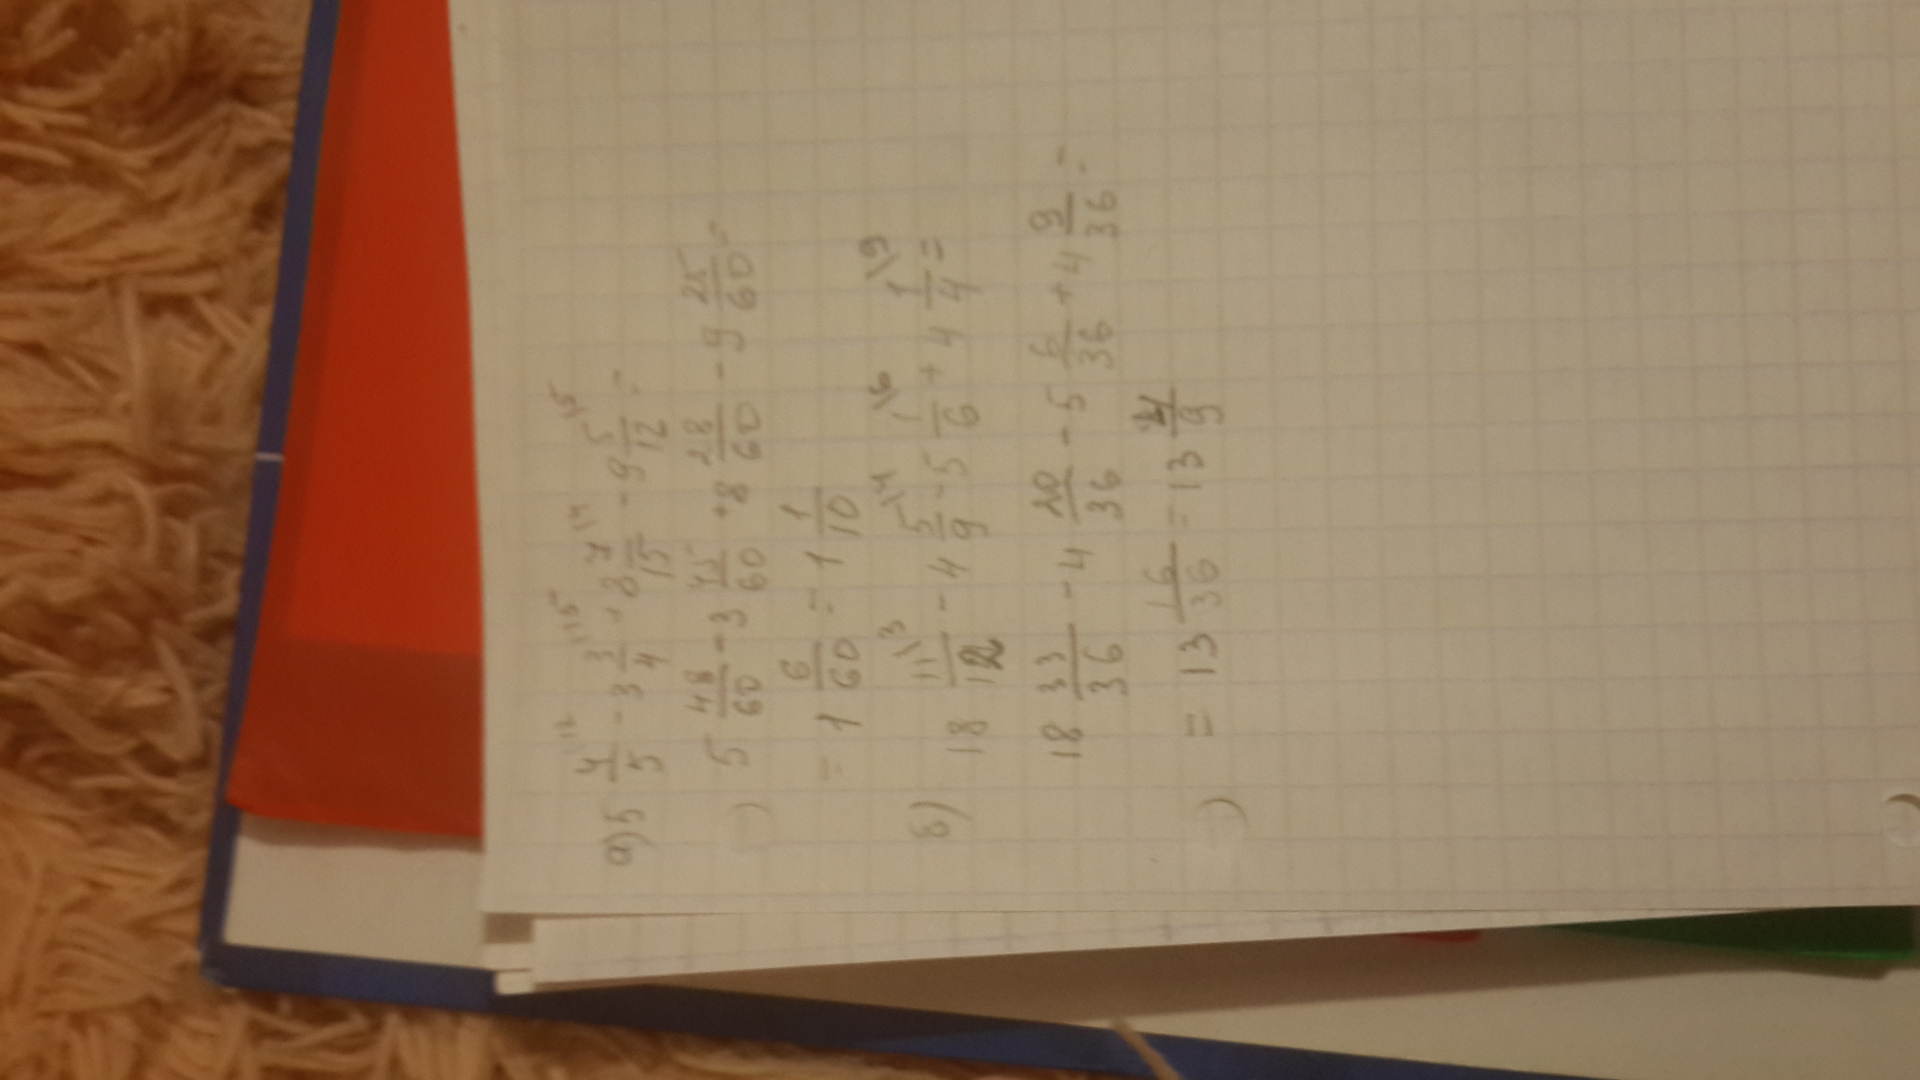 а) 5 4/5 \12 - 3 3/4 \15 + 8 7/15 \4 - 9 5/12 \5 =
5 48/60 - 3 45/60 + 8 28/60 - 9 25/60 =
= 1 6/60 = 1 1/10
б) 18 11/12 \3 - 4 5/9 \4 - 5 1/6 \6 + 4 1/4 \9 =
18 33/36 - 4 20/36 - 5 6/36 + 4 9/36 =
= 13 16/36 = 13 4/9